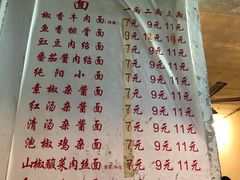 面 一两 二两 三两
椒香牛肉面 7元 9元 11元
鱼香排骨面 9元 12元 14元
豇豆肉绍面 7元 9元 11元
番茄酱肉绍面 7元 9元 11元
纯阳小面 7元 9元 11元
素椒杂酱面 7元 9元 11元
红汤杂酱面 7元 9元 11元
清汤杂酱面 7元 9元 11元
泡椒鸡杂面 7元 9元 11元
山椒酸菜肉丝面 7元 9元 11元